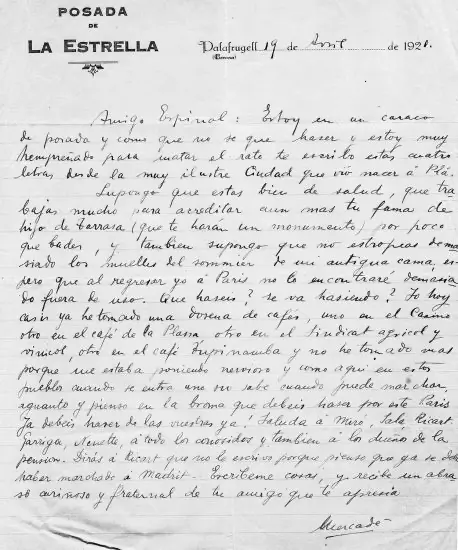 POSADA
DE
LA ESTRELLA
Palafrugell 19 de Avril de 1921.
(Gerona)
Amigo Espinal: Estoy en un caraco
de posada y como que no se que haser y estoy muy
hempreñado para matar el rato te escribo estas cuatro
letras desde la muy ilustre Ciudad que vió nacer á Plá.
Supongo que estas bien de salud, que tra-
bajas mucho para acreditar aun mas tu fama de
hijo de Tarrasa (que te haran un monumento) por poco
que bades, y tambien supongo que no estropias dema
siado los muelles del sommier de mi antigua cama, es
pero que al regresar yo á Paris no lo encontraré demasia
do fuera de uso. Que haseis? se va hasiendo? Yo hoy
casis ya he tomado una dosena de cafés, uno en el Casino
otro en el café de la Plassa, otro en el Sindicat agricol y
vinicol, otro en el café Tupinamba y no he tomado mas
porque me estaba poniendo nervioso y como aqui en estos
pueblos cuando se entra uno no sabe cuando puede marchar,
aguanto y pienso en la broma que debeis hasar por este Paris
Ja debeis haser de las vuestras ya! Saluda á Miró, Sala, Ricart
Artiga, Nenette, á todo los conosidos y tambien á los dueños de la
pension. Dirás á Ricart que no le escrivo porque pienso que ya se debe
haber marchado á Madrid. Escribeme cosas, y recibe un abra
so cariñoso y fraternal de tu amigo que te apresia
Mercadé